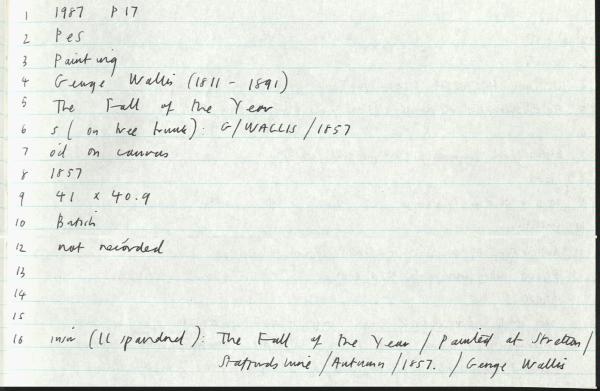 1 1987 P17
2 Pes
3 Painting
4 George Wallis (1811 - 1891)
5 The Fall of the Year
6 s (on tree trunk): G/WALLIS/1857
7 oil on canvas
8 1857
9 41 x 40.9
10 British
12 not recorded
13
14
15
16 inscr (LL spandrel): The Fall of the Year / Painted at Stretton/
Staffordshire /Autumn /1857. /George Wallis